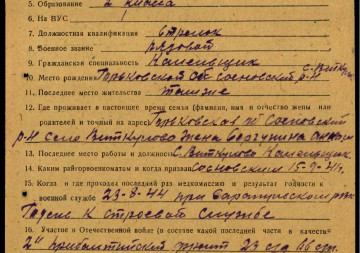 5. Образование 2 класса
6. На ВУС
7. Должностная квалификация стрелок
8. Военное звание рядовой
9. Гражданская специальность Каменьщик
с. Виткул
10. Место рождения Горьковской об Сосновский р-н
11. Последнее место жительства там же
12. Где проживает в настоящее время семья (фамилия, имя и отчество жены или
родителей и точный адрес) Горьковская об Сосновский
р-н село Виткулово жена
13. Последнее место работы и должность с. Виткулово Каменьщик
14. Каким райгорвоенкоматом и когда призван Сосновским 15-9-41г.
15. Когда и где проходил последний раз медкомиссию и результат годности к
военной службе 23-8-44 при
Годен к строевой службе
16. Участие в Отечественной войне (в составе какой последней части в качестве:
2й прибалтийский фронт 23